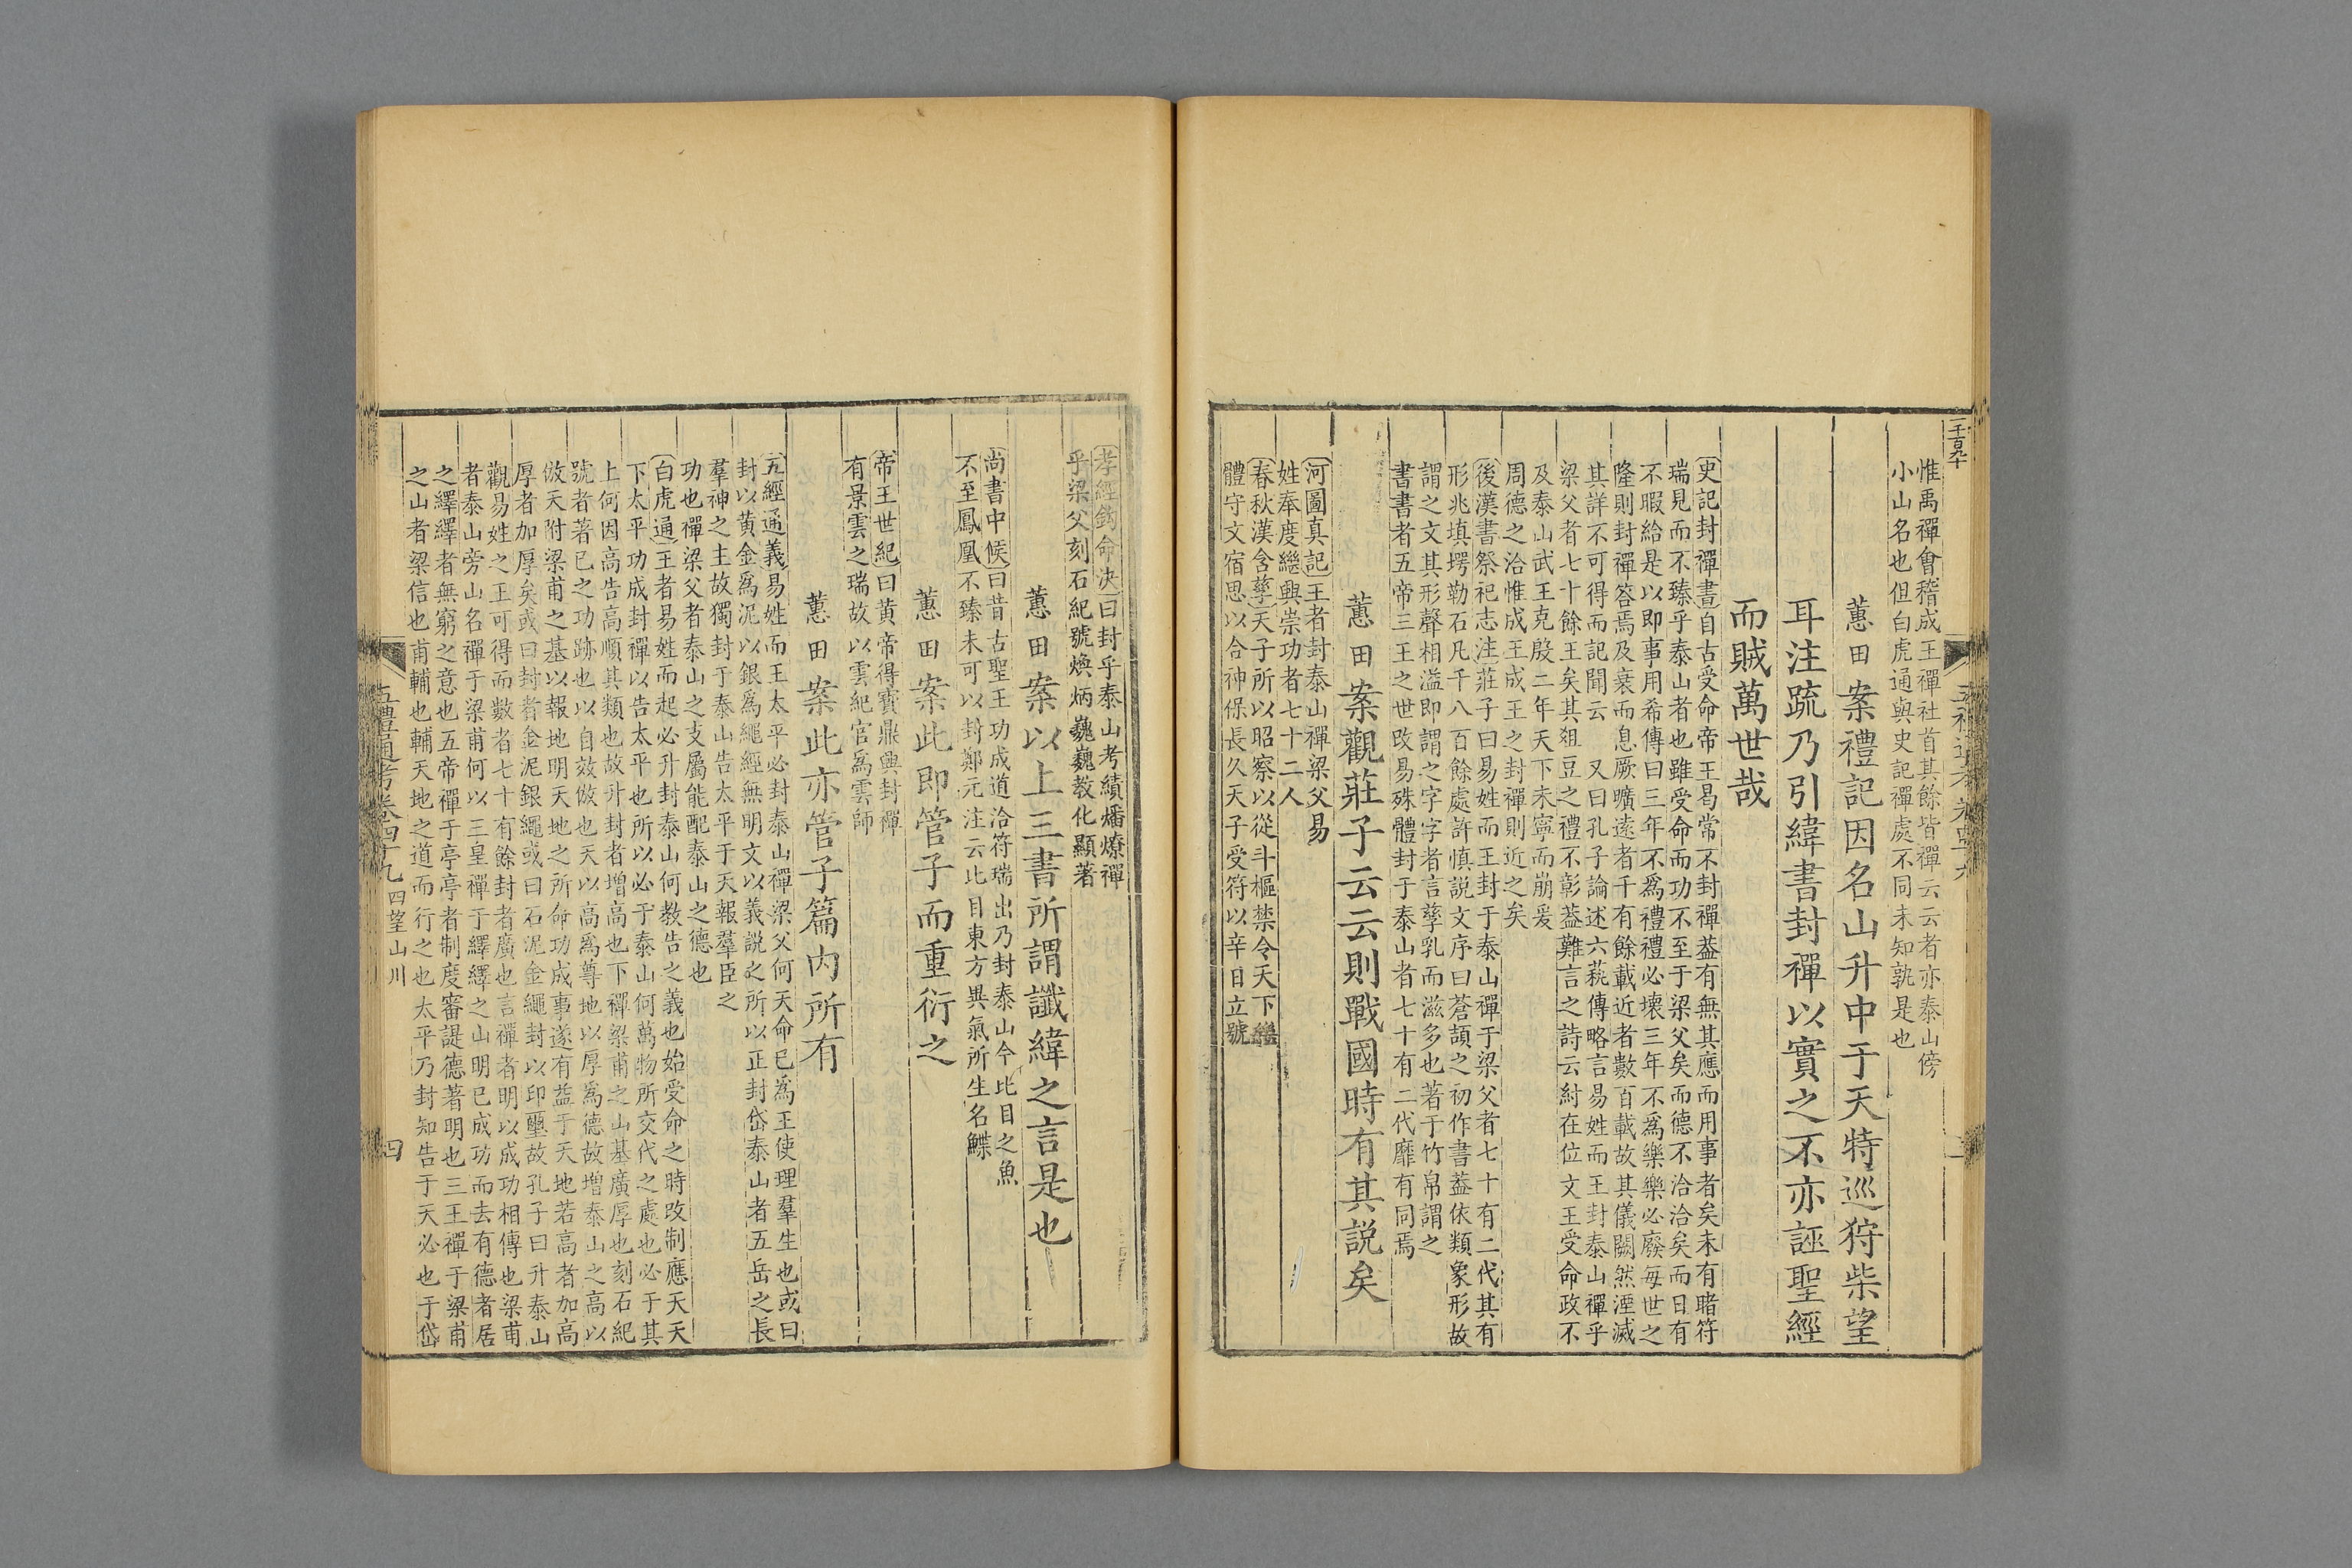 惟禹禪會稽成王禪社首其餘皆禪云云者亦泰山傍
小山名也但白虎通與史記禪處不同未知孰是也
蕙田案禮記因名山升中于天特巡狩柴望
耳注疏乃引緯書封禪以實之不亦誣聖經
而賊萬世哉
史記封禪書自古受命帝王曷常不封禪葢有無其應而用事者矣未有睹符
瑞見而不臻乎泰山者也雖受命而功不至于梁父矣而德不洽洽矣而日有
不暇給是以即事用希傳曰三年不爲禮禮必壞三年不爲樂樂必廢每世之
隆則封禪答焉及衰而息厥曠遠者千有餘載近者數百載故其儀闕然湮滅
其詳不可得而記聞云　又曰孔子論述六蓺傳略言易姓而王封泰山禪乎
梁父者七十餘王矣其俎豆之禮不彰葢難言之詩云紂在位文王受命政不
及泰山武王克殷二年天下未寧而崩爰
周德之洽惟成王成王之封禪則近之矣
後漢書祭祀志注莊子曰易姓而王封于泰山禪于梁父者七十有二代其有
形兆填堮勒石凡千八百餘處許慎説文序曰蒼頡之初作書葢依類象形故
謂之文其形聲相溢即謂之字字者言孳乳而滋多也著于竹帛謂之
書書者五帝三王之世改易殊體封于泰山者七十有二代靡有同焉
蕙田案觀莊子云云則戰國時有其説矣
河圖真記王者封泰山禪梁父易
姓奉度繼興崇功者七十二人
春秋漢含孳天子所以昭察以從斗樞禁令天下繼
體守文宿思以合神保長久天子受符以辛日立號
孝經鈎命决曰封乎泰山考績燔燎禪
乎梁父刻石紀號煥炳巍巍教化顯著
蕙田案以上三書所謂讖緯之言是也
尚書中候曰昔古聖王功成道洽符瑞出乃封泰山今比目之魚
不至鳳凰不臻未可以封鄭元注云比目東方異氣所生名鰈
蕙田案此即管子而重衍之
帝王世紀曰黄帝得寶鼎興封禪
有景雲之瑞故以雲紀官爲雲師
蕙田案此亦管子篇内所有
五經通義易姓而王太平必封泰山禪梁父何天命已爲王使理羣生也或曰
封以黄金爲泥以銀爲繩經無明文以義説之所以正封岱泰山者五岳之長
羣神之主故獨封于泰山告太平于天報羣臣之
功也禪梁父者泰山之支屬能配泰山之德也
白虎通王者易姓而起必升封泰山何教告之義也始受命之時改制應天天
下太平功成封禪以告太平也所以必于泰山何萬物所交代之處也必于其
上何因高告高順其類也故升封者增高也下禪梁甫之山基廣厚也刻石紀
號者著已之功跡也以自效倣也天以高爲尊地以厚爲德故增泰山之高以
倣天附梁甫之基以報地明天地之所命功成事遂有益于天地若高者加高
厚者加厚矣或曰封者金泥銀繩或曰石泥金繩封以印璽故孔子曰升泰山
觀易姓之王可得而數者七十有餘封者廣也言禪者明以成功相傳也梁甫
者泰山旁山名禪于梁甫何以三皇禪于繹繹之山明已成功而去有德者居
之繹繹者無窮之意也五帝禪于亭亭者制度審諟德著明也三王禪于梁甫
之山者梁信也甫輔也輔天地之道而行之也太平乃封知告于天必也于岱
五禮通考卷四十九　四望山川　四